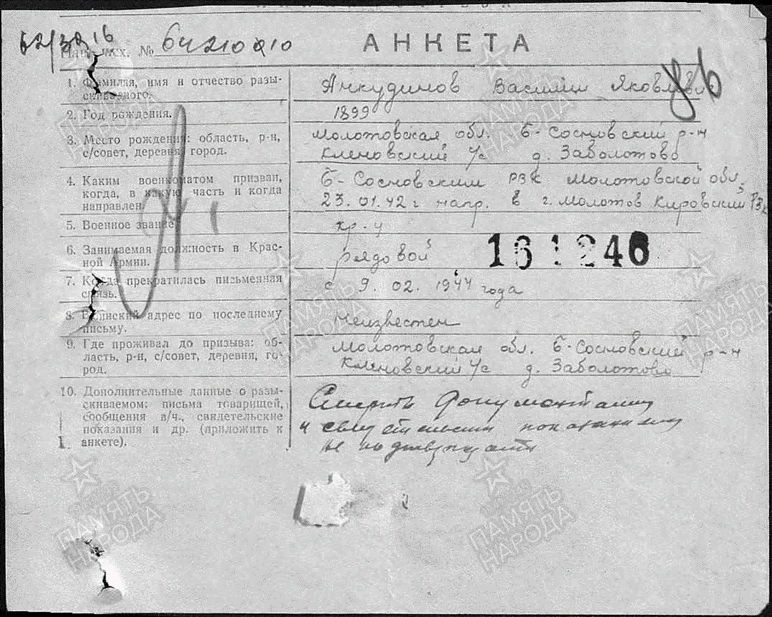 АНКЕТА
№ 6421010
1. Фамилия, имя и отчество разыскиваемого.
Анкудинов Василий Яковлевич
2. Год рождения.
1899
3. Место рождения: область, р-н, с/совет, деревня, город.
Молотовская обл. Б-Сосновский р-н
Кленовский с/с д. Заболотово
4. Каким военкоматом призван, когда, в какую часть и когда направлен.
Б-Сосновским РВК Молотовской обл.
23.01.42 г напр. в г. Молотов Кировский РВК
5. Военное звание.
кр-ц
6. Занимаемая должность в Красной Армии.
рядовой
161246
7. Когда прекратилась письменная связь.
с 9.02.1944 года
8. Воинский адрес по последнему письму.
неизвестен
9. Где проживал до призыва: область, р-н, с/совет, деревня, город.
Молотовская обл. Б-Сосновский р-н
Кленовский с/с д. Заболотово
10. Дополнительные данные о разыскиваемом: письма товарищей, сообщения в/ч, свидетельские показания и др. (приложить к анкете).
Смерть документами
и свидетельскими показаниями
не подтверждается
86
ПАМЯТЬ НАРОДА